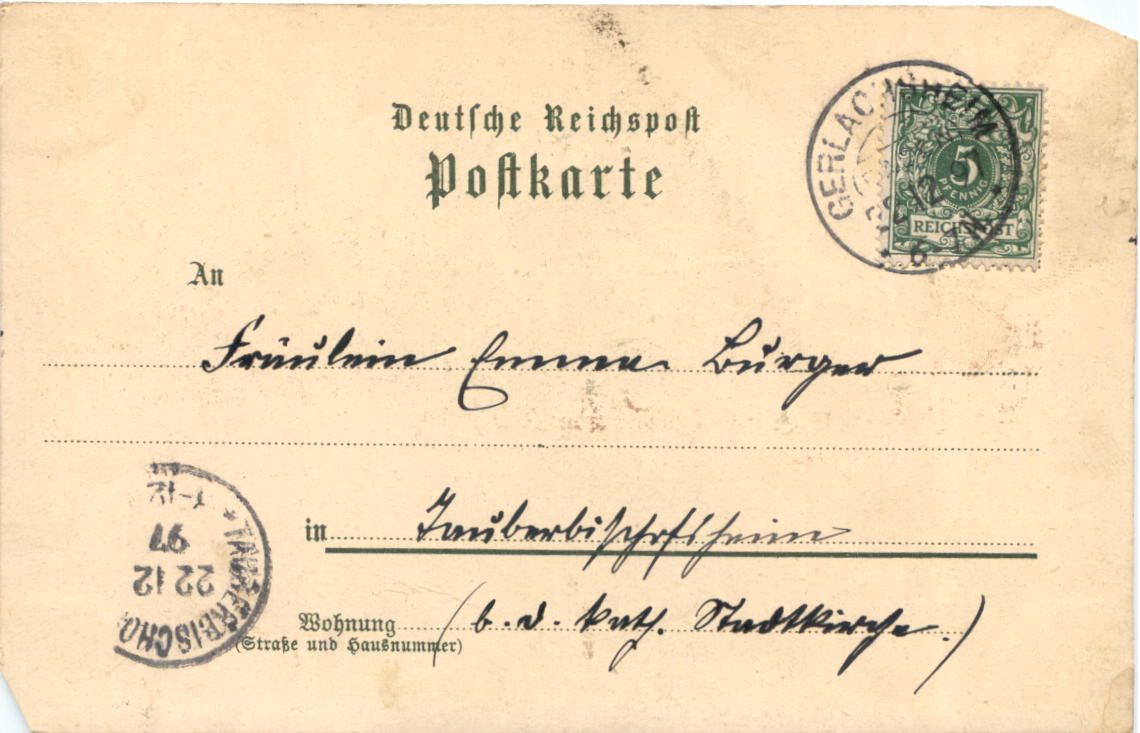 Deutsche Reichspost
Postkarte
GERLACHSHEIM
22 12 97
6-7N.
5
PFENNIG
REICHSPOST
An
Fräulein Emma Burger
in Tauberbischofsheim
Wohnung (b. d. kath. Stadtkirche.)
(Straße und Hausnummer)
TAUBERBISCHO
22 12
97